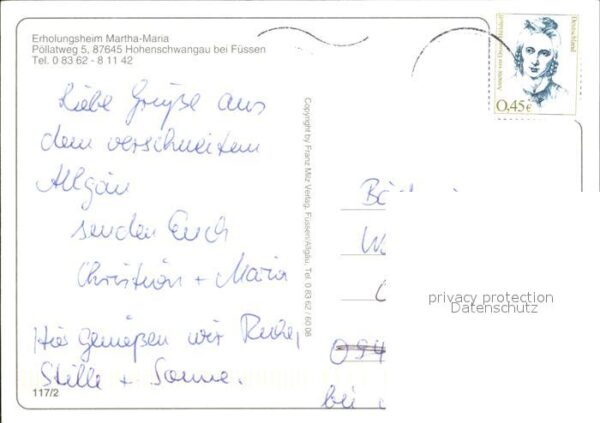 Erholungsheim Martha-Maria
Pöllatweg 5, 87645 Hohenschwangau bei Füssen
Tel. 0 83 62 - 8 11 42
Liebe Grüße aus
dem verschneiten
Allgäu
senden Euch
Christian + Maria
Hier genießen wir Ruhe,
Stille + Sonne.
117/2
Copyright by Franz Milz Verlag, Füssen/Allgäu, Tel. 0 83 62 / 60 98
Deutschland
0,45€
094
bei
privacy protection
Datenschutz